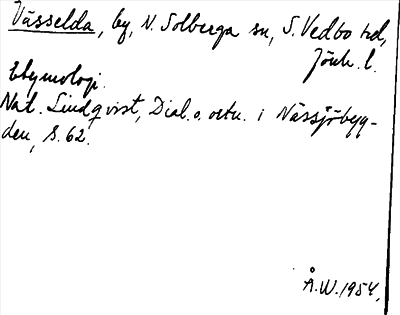 Vässelda, by, N. Solberga sn, S. Vedbo hd,
Jönk. l.
Etymologi.
Nat. Lindqvist, Dial. o. ortn. i Nässjöbyg-
den, s. 62.
Å.W. 1954.